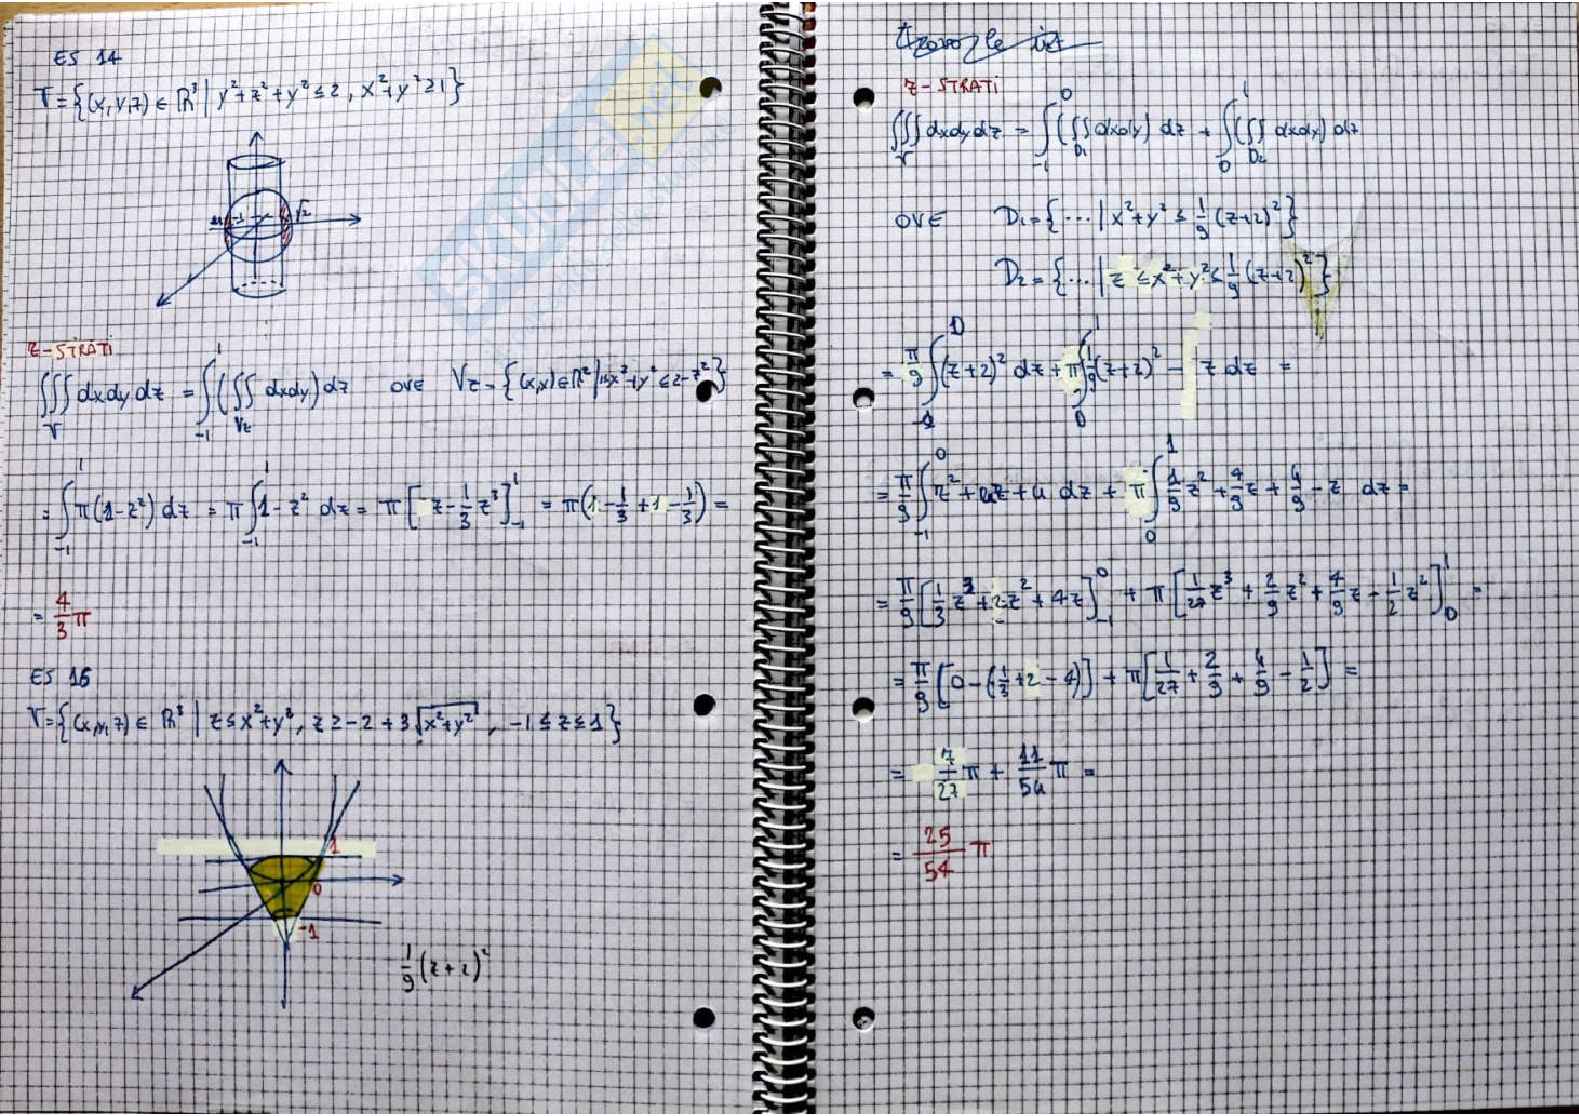 ES 14
V = {(x,y,z) ∈ ℝ³ | y²+z²+y² ≤ 2, x²+y² ≥ 1}
√2
Z-STRATI
∭_V dxdydz = ∫_{-1}^{1} (∬_{V_z} dxdy) dz OVE V_z = {(x,y) ∈ ℝ² | 1≤x²+y² ≤ 2-z²}
= ∫_{-1}^{1} π(1-z²) dz = π ∫_{-1}^{1} 1-z² dz = π [z - 1/3 z³]_{-1}^{1} = π(1 - 1/3 + 1 - 1/3) =
= 4/3 π
ES 16
V = {(x,y,z) ∈ ℝ³ | z ≤ x²+y², z ≥ -2 + 3√(x²+y²), -1 ≤ z ≤ 1}
1
0
-1
1/9 (z+2)²
Z-STRATI
∭_V dxdydz = ∫_{-1}^{0} (∬_{D₁} dxdy) dz + ∫_{0}^{1} (∬_{D₂} dxdy) dz
OVE D₁ = {... | x²+y² ≤ 1/9 (z+2)²}
D₂ = {... | z ≤ x²+y² ≤ 1/9 (z+2)²}
= π/9 ∫_{-1}^{0} (z+2)² dz + π ∫_{0}^{1} 1/9 (z+2)² - z dz =
= π/9 ∫_{-1}^{0} z²+4z+4 dz + π ∫_{0}^{1} 1/9 z² + 4/9 z + 4/9 - z dz =
= π/9 [1/3 z³ + 2z² + 4z]_{-1}^{0} + π [1/27 z³ + 2/9 z² + 4/9 z - 1/2 z²]_{0}^{1} =
= π/9 [0 - (-1/3 + 2 - 4)] + π [1/27 + 2/9 + 4/9 - 1/2] =
= 7/27 π + 11/54 π =
= 25/54 π
SKUOLA.net